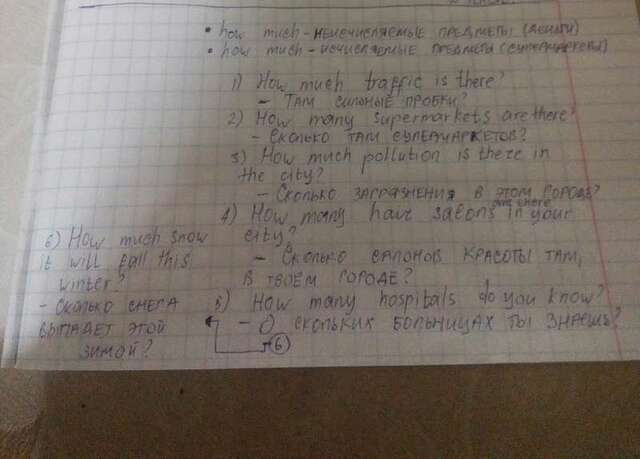 • how much - неисчисляемые предметы (деньги)
• how much - исчисляемые предметы (супермаркеты)
1) How much traffic is there?
- Там сильные пробки?
2) How many supermarkets are there?
- Сколько там супермаркетов?
3) How much pollution is there in
the city?
- Сколько загрязнения в этом городе?
4) How many have salons are there in your
city?
- Сколько салонов красоты там,
в твоём городе?
5) How many hospitals do you know?
- О скольких больницах ты знаешь?
6
6) How much snow
it will fall this
winter?
- Сколько снега
выпадет этой
зимой?